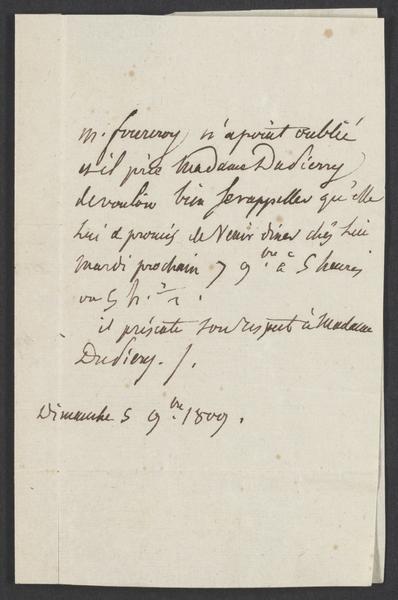 m. fourcroy n'a point oublié
et il prie Madame Dudierry
de vouloir bien se rappeller qu'elle
lui a promis de Venir diner chés lui
mardi prochain 7 9.bre à 5 heures
ou 5 h. ½.
il présente son respect à Madame
Dudiery. f.
Dimanche 5 9.bre 1809.